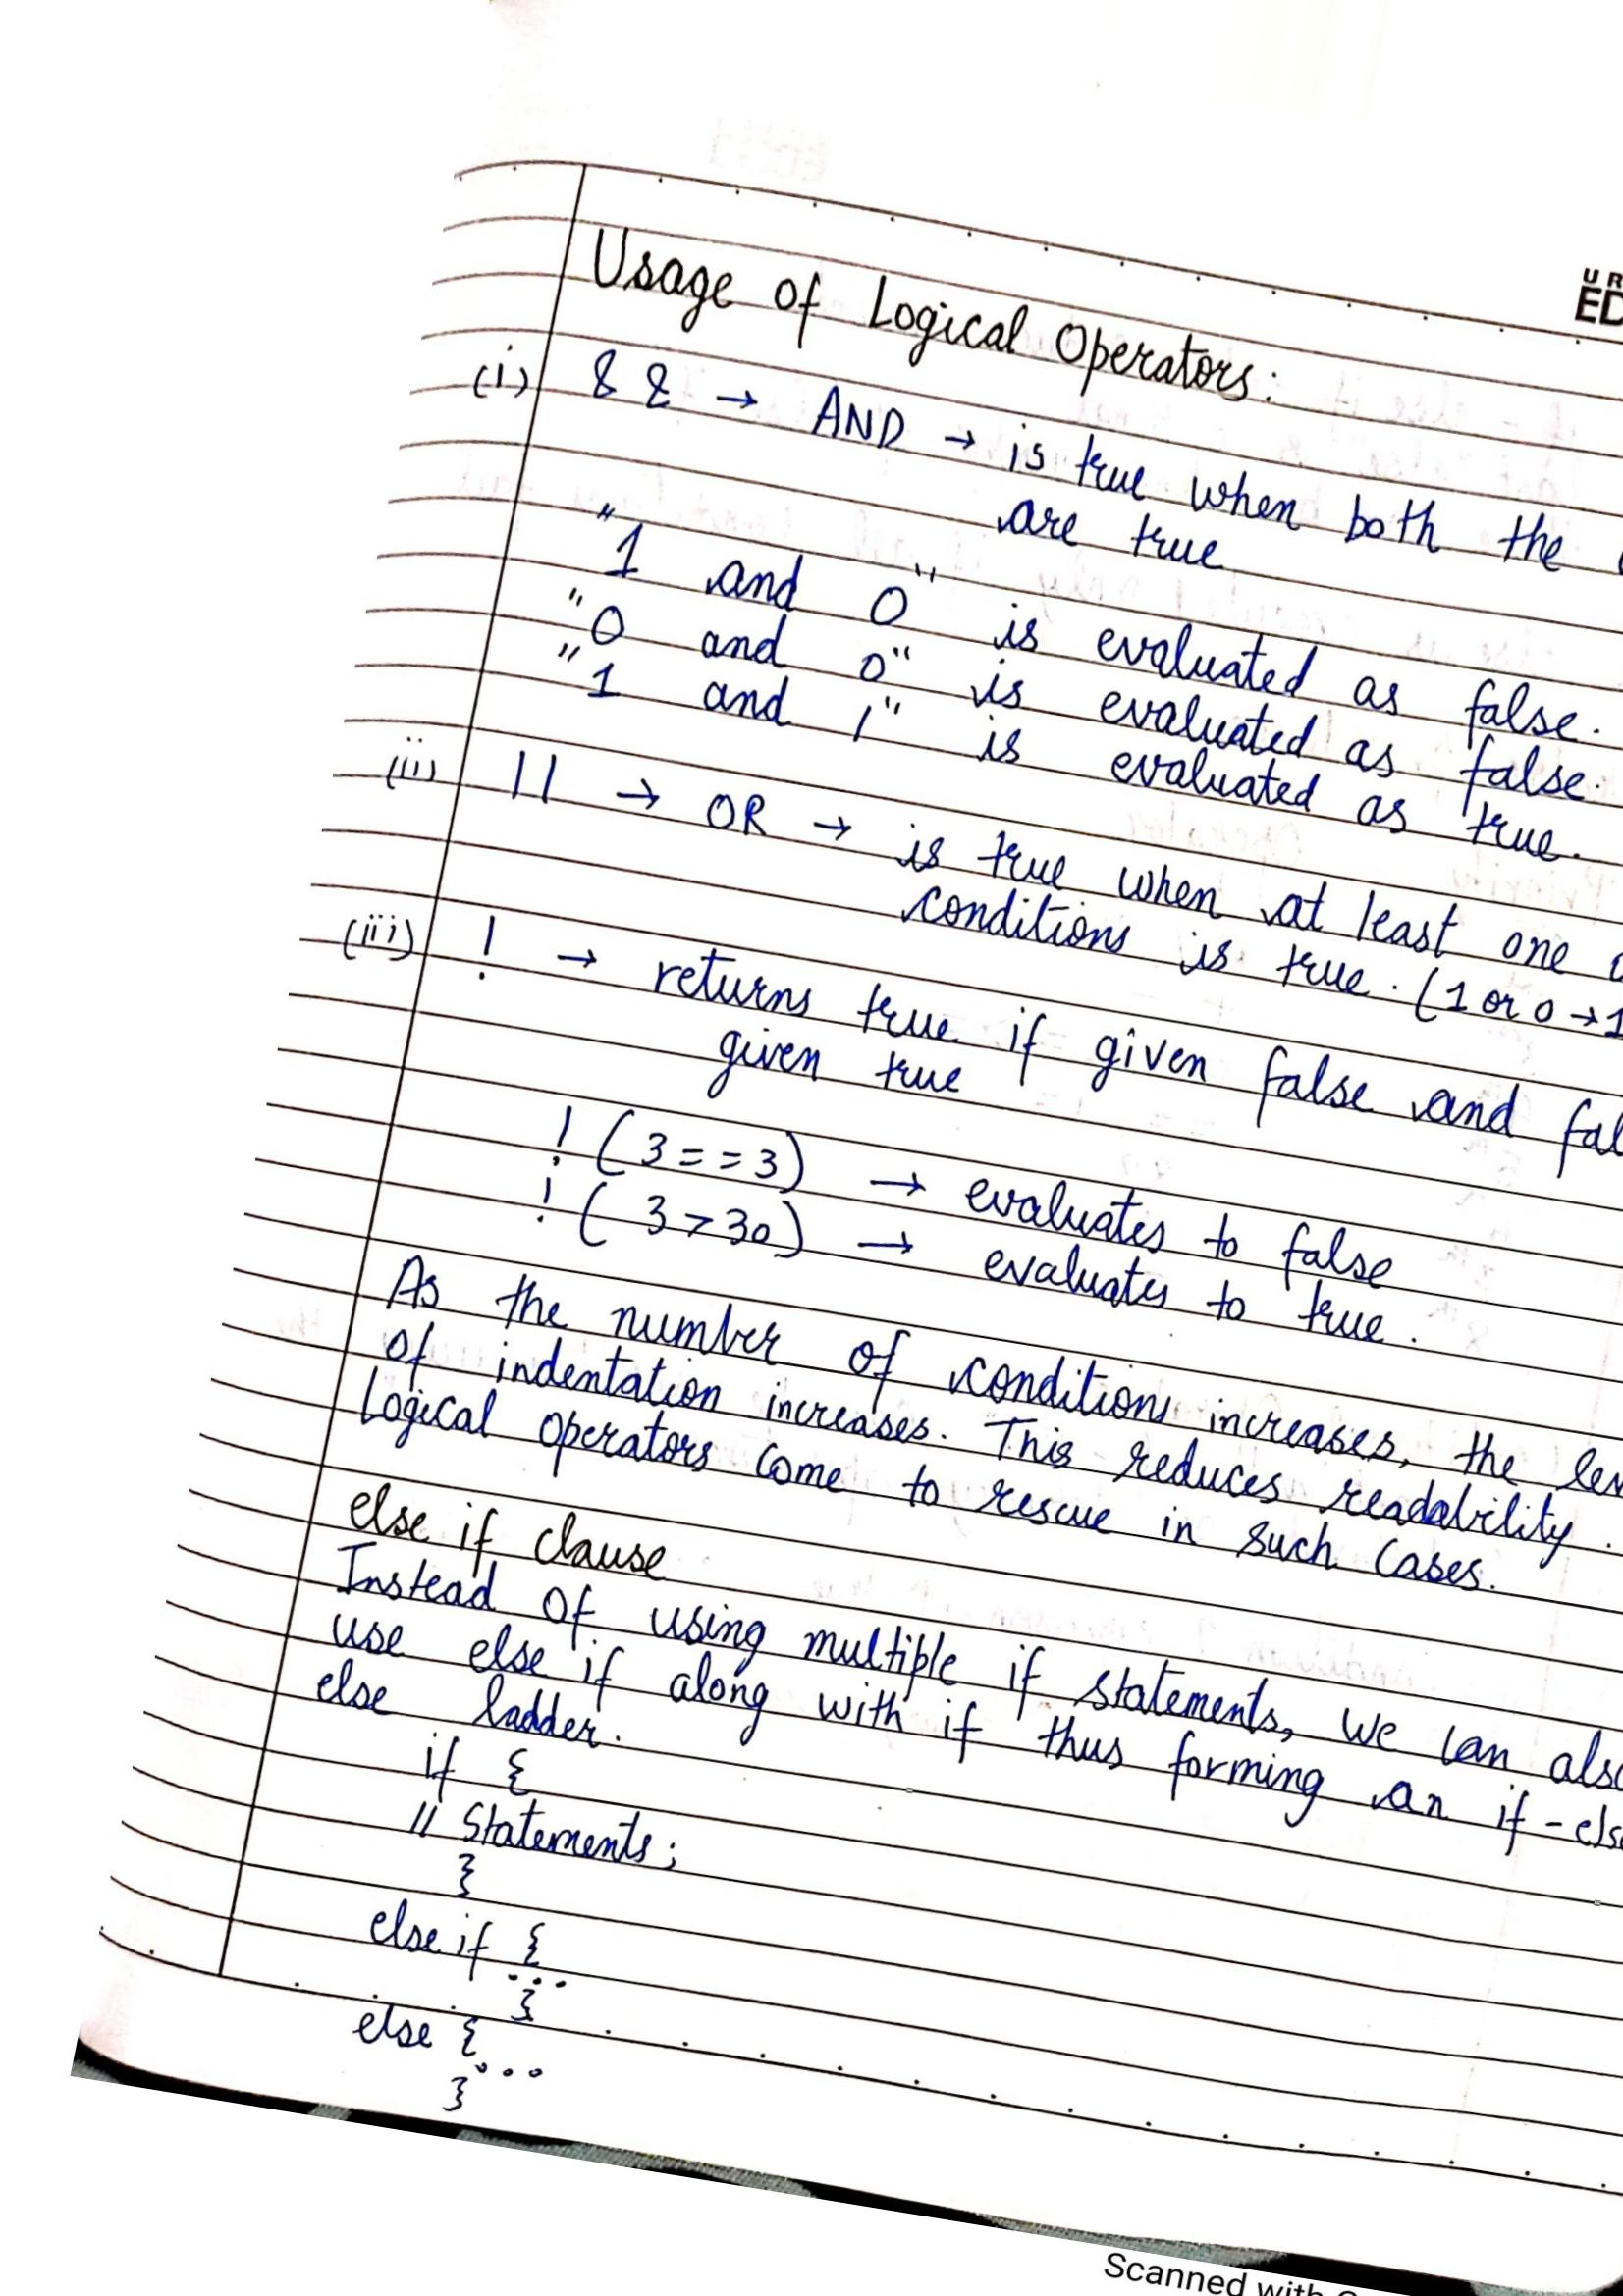 UR
ED
Usage of Logical Operators:
(i) && → AND → is true when both the
are true
"1 and 0" is evaluated as false.
"0 and 0" is evaluated as false.
"1 and 1" is evaluated as true.
(ii) || → OR → is true when at least one
conditions is true. (1 or 0 → 1
(iii) ! → returns true if given false and fal
given true
! (3==3) → evaluates to false
! (3>30) → evaluates to true.
As the number of conditions increases, the lev
of indentation increases. This reduces readability.
Logical operators come to rescue in such cases.
else if clause
Instead of using multiple if statements, we can also
use else if along with if thus forming an if-else
else ladder.
if {
// Statements;
}
else if {
...
}
else {
...
}
Scanned with